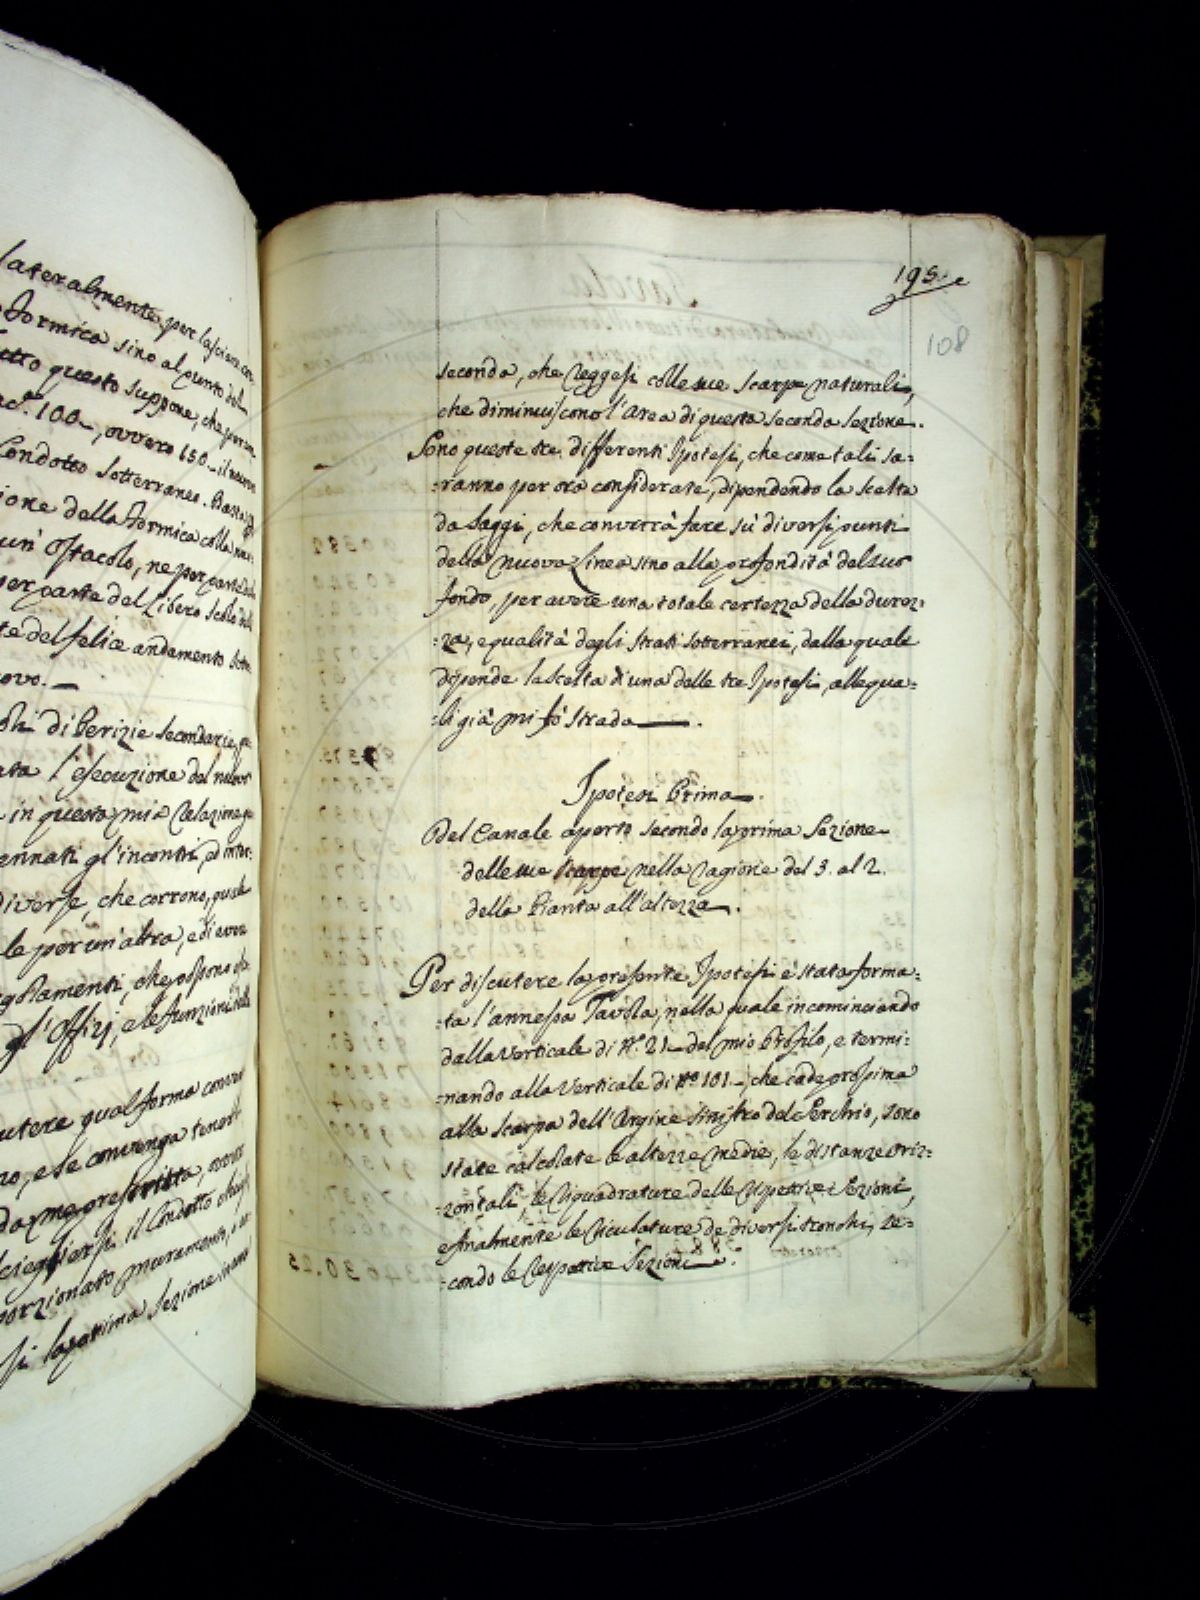 lateralmente, per lasciare
Formica sino al punto del
questo suppone, che per
100-, ovvero 150.- il nuovo
Condotto Sotterraneo. Basta
ione della Formica colla
un' Ostacolo, ne per parte
per parte del libero Scolo
te del felice andamento
ovo. —
di Perizie secondarie,
ata l'esecuzione del nuovo
in questa mia Relazione
ennati gl'incontri, ed
diverse, che corrono, quale
le per un'altra, e di
egolamenti, che possono
gl'Offizj, e le funzioni
utere qual forma
no, e se convenga
da me prescritta,
sciegliersi il Condotto
porzionato muramento,
si la prima Sezione
195.
108
seconda, che leggesi colle sue Scarpe naturali,
che diminuiscono l'Area di questa seconda Sezione.
Sono queste tre differenti Ipotesi, che come tali sa:
:ranno per ora considerate, dipendendo la scelta
da Saggi, che converrà fare sù diversi punti
della nuova Linea sino alla profondità del suo
fondo, per avere una totale certezza della durez:
:za, e qualità degli Strati Sotterranei, dalla quale
dipende la scelta di una delle tre Ipotesi, alle qua:
:li già mi fò Strada —.
Ipotesi Prima.
Del Canale aperto secondo la prima Sezione
delle sue Scarpe nella ragione del 3. al 2.
della Pianta all'altezza.
Per discutere la presente Ipotesi è stata forma:
:ta l'annessa Tavola, nella quale incominciando
dalla Verticale di N.° 21- del mio Profilo, e termi:
:nando alla Verticale di N.° 101-, che cade prossima
alla Scarpa dell'Argine Sinistro del Serchio, sono
state calcolate le altezze medie, le distanze oriz:
:zontali, le riquadrature delle rispettive Sezioni,
e finalmente le de diversi tronchi, se:
:condo le respettive Sezioni.